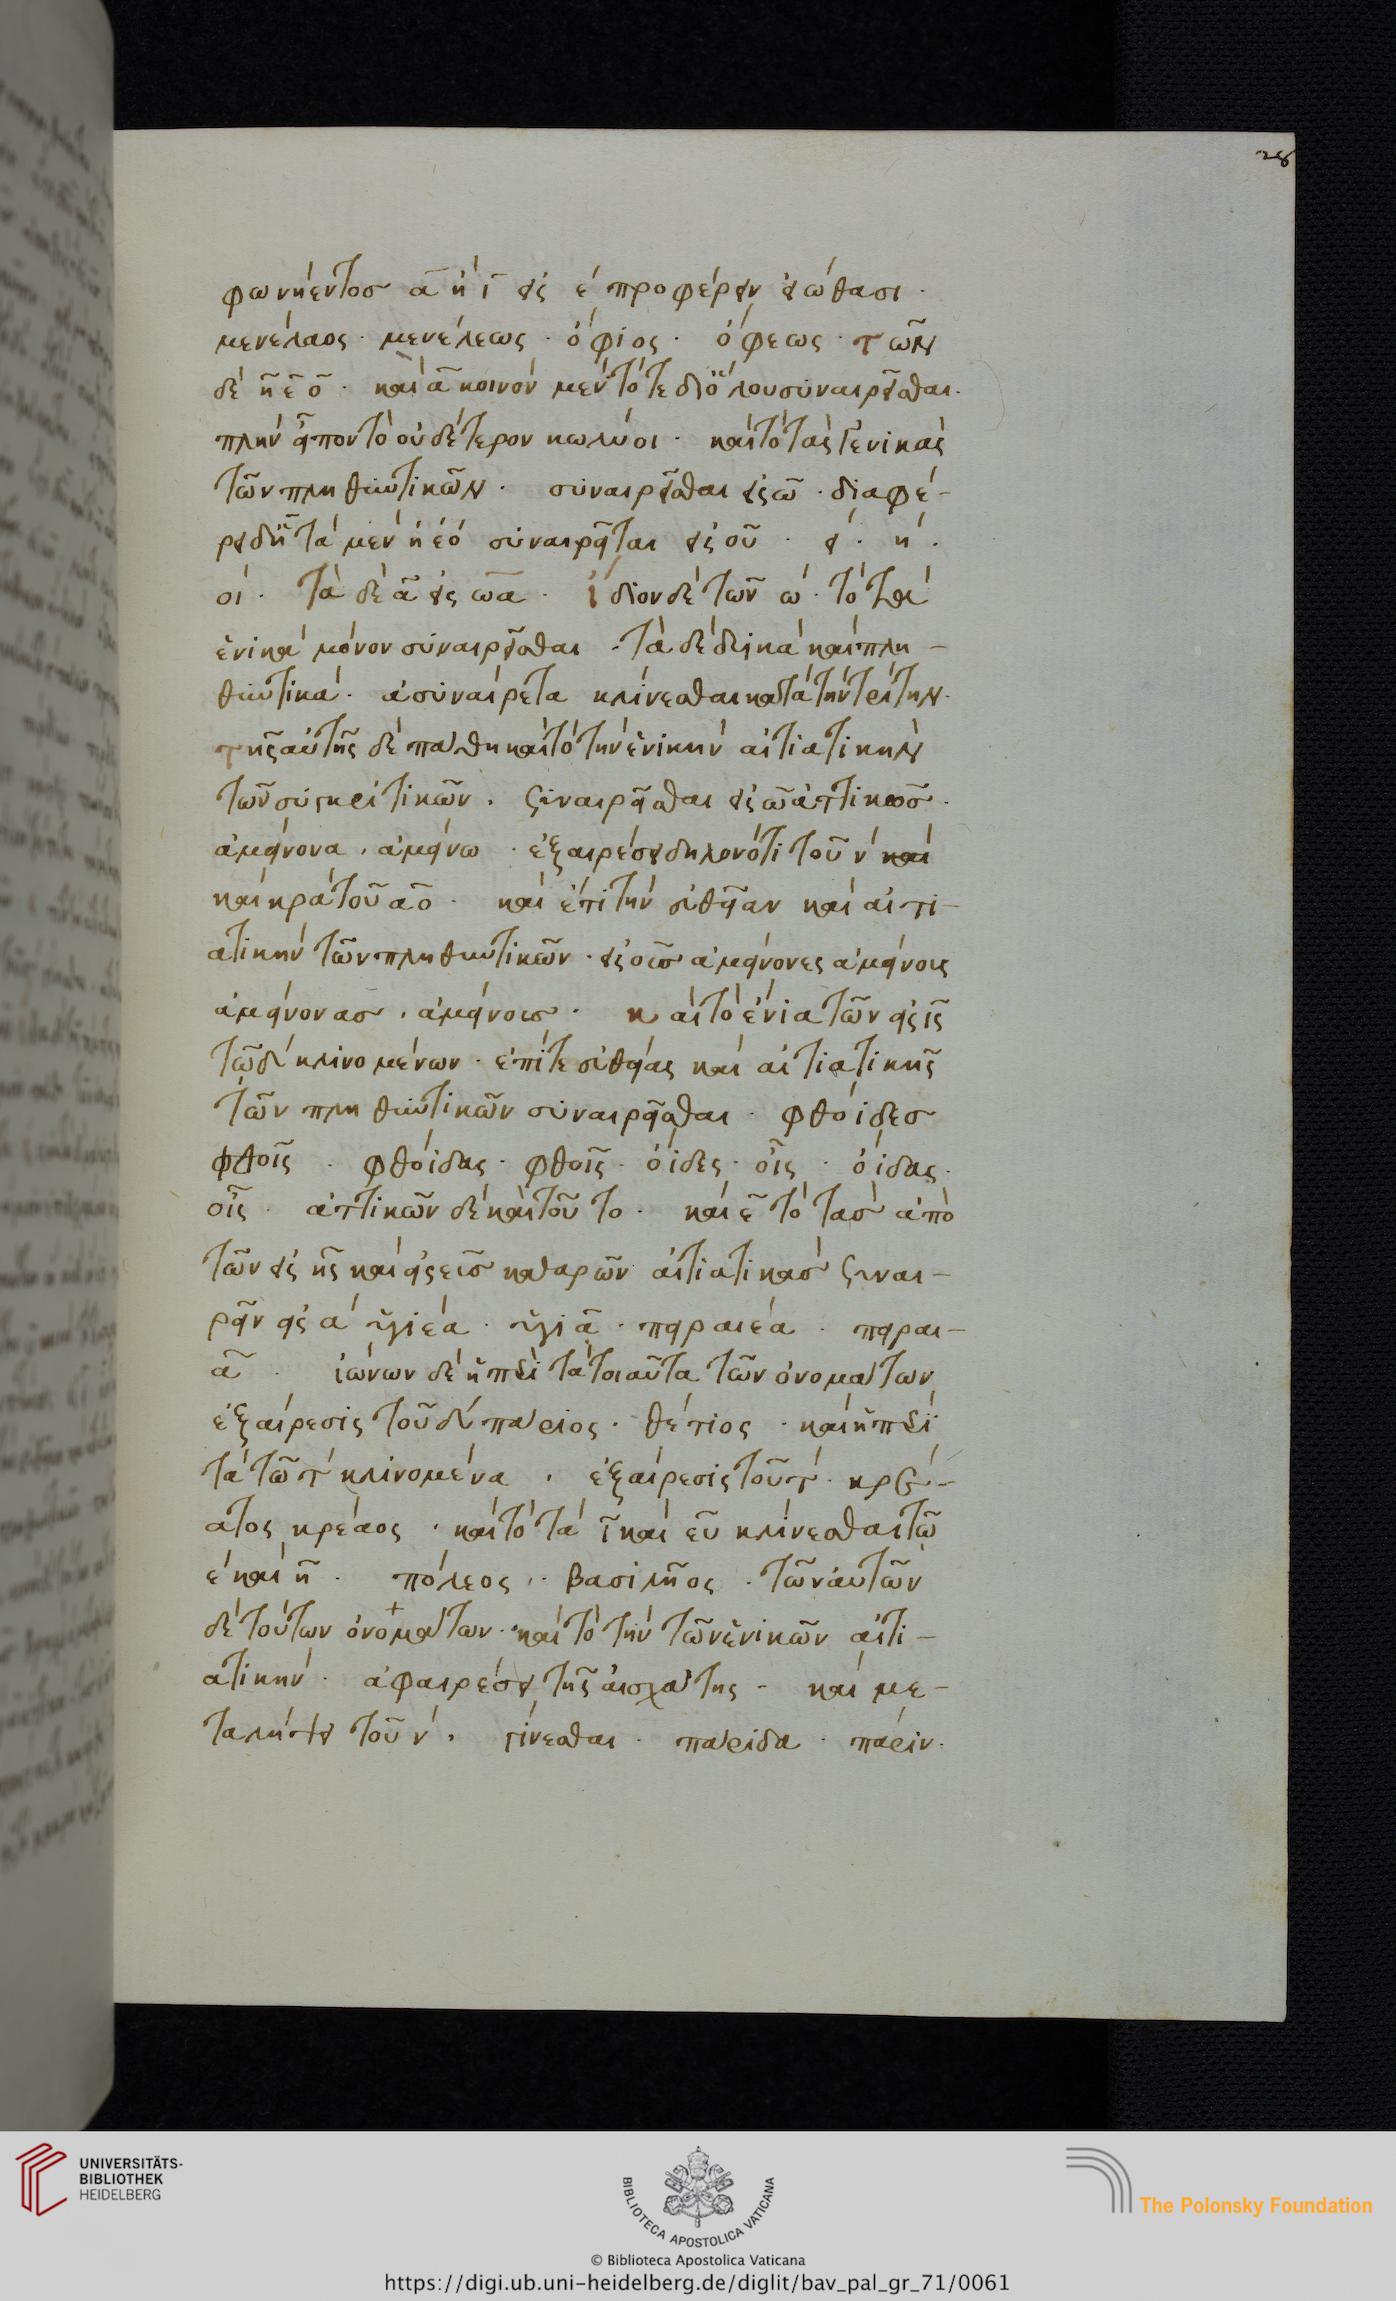 28
φωνήεντοσ α ἢ ι εἰς ε προφέρειν εἰώθασι ·
μενέλαος · μενέλεως · ὄφιος · ὄφεως · τῶν
δὲ η ε ο · καὶ α κοινὸν μὲν τότε διόλου συναιρεῖσθαι ·
πλὴν εἴπου τὸ οὐδέτερον κωλύοι · καὶ τὸ τὰς γενικὰς
τῶν πληθυντικῶν · συναιρεῖσθαι εἰς ω · διαφέ-
ρει δὴ τὰ μὲν η ε ο συναιρεῖται εἰς ου · ει · η ·
οι · τὰ δὲ α εἰς ω α · ἴδιον δὲ τῶν ω · τὸ τὰ
ἑνικὰ μόνον συναιρεῖσθαι · τὰ δὲ δυικὰ καὶ πλη-
θυντικὰ · ἀσυναίρετα κλίνεσθαι κατὰ τὴν τρίτην ·
τῆς αὐτῆς δὲ πάθη καὶ τὸ τὴν ἑνικὴν αἰτιατικὴν
τῶν συγκριτικῶν · συναιρεῖσθαι εἰς ω ἀττικῶσ ·
ἀμείνονα · ἀμείνω · ἐξαιρέσει δηλονότι τοῦ ν καὶ
καὶ κρά τοῦ α ο · καὶ ἐπὶ τὴν εὐθεῖαν καὶ αἰτι-
ατικὴν τῶν πληθυντικῶν · εἰς ουσ ἀμείνονες ἀμείνους
ἀμείνονασ · ἀμείνουσ · καὶ τὸ ἔνια τῶν εἰς ις
τῶ δ κλινομένων · ἐπί τε εὐθείας καὶ αἰτιατικῆς
τῶν πληθυντικῶν συναιρεῖσθαι · φθόιδεσ
φθοῖς · φθόιδας · φθοῖς · ὄιδες · οἶς · ὄιδας ·
οἶς · ἀττικῶν δὲ καὶ τοῦτο · καὶ ἔτι τὸ τὰσ ἀπὸ
τῶν εἰς ης καὶ εἰς εισ καθαρῶν αἰτιατικὰσ συναι-
ρεῖν εἰς α ὑγιέα · ὑγιᾶ · πειραιέα · πειραι-
ᾶ · ἰώνων δὲ ἡ περὶ τὰ τοιαῦτα τῶν ὀνομάτων
ἐξαίρεσις τοῦ δ πάριος · θέτιος · καὶ ἡ περὶ
τὰ τῶ τ κλινόμενα · ἐξαίρεσις τοῦ τ · κρέ-
ατος κρέαος · καὶ τὸ τὰ ι καὶ ευ κλίνεσθαι τῶ
ε καὶ η · πόλεος · βασιλῆος · τῶν αὐτῶν
δὲ τούτων ὀνομάτων · καὶ τὸ τὴν τῶν ἑνικῶν αἰτι-
ατικὴν · ἀφαιρέσει τῆς ἐσχάτης · καὶ με-
ταλήψει τοῦ ν · γίνεσθαι · πάριδα · πάριν ·
UNIVERSITÄTS-
BIBLIOTHEK
HEIDELBERG
BIBLIOTECA APOSTOLICA VATICANA
The Polonsky Foundation
© Biblioteca Apostolica Vaticana
https://digi.ub.uni-heidelberg.de/diglit/bav_pal_gr_71/0061